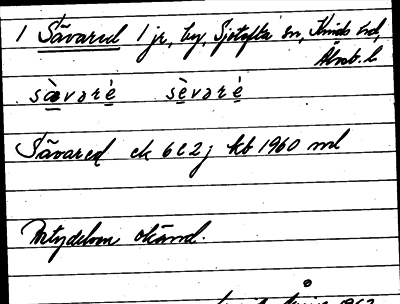 1 Sävared 1 jr, by, Sjötofta sn, Kinds hd,
Älvsb. l
sävarè sèvarè
Sävared ek 6 e 2 j kb 1960 ml
Betydelsen okänd.